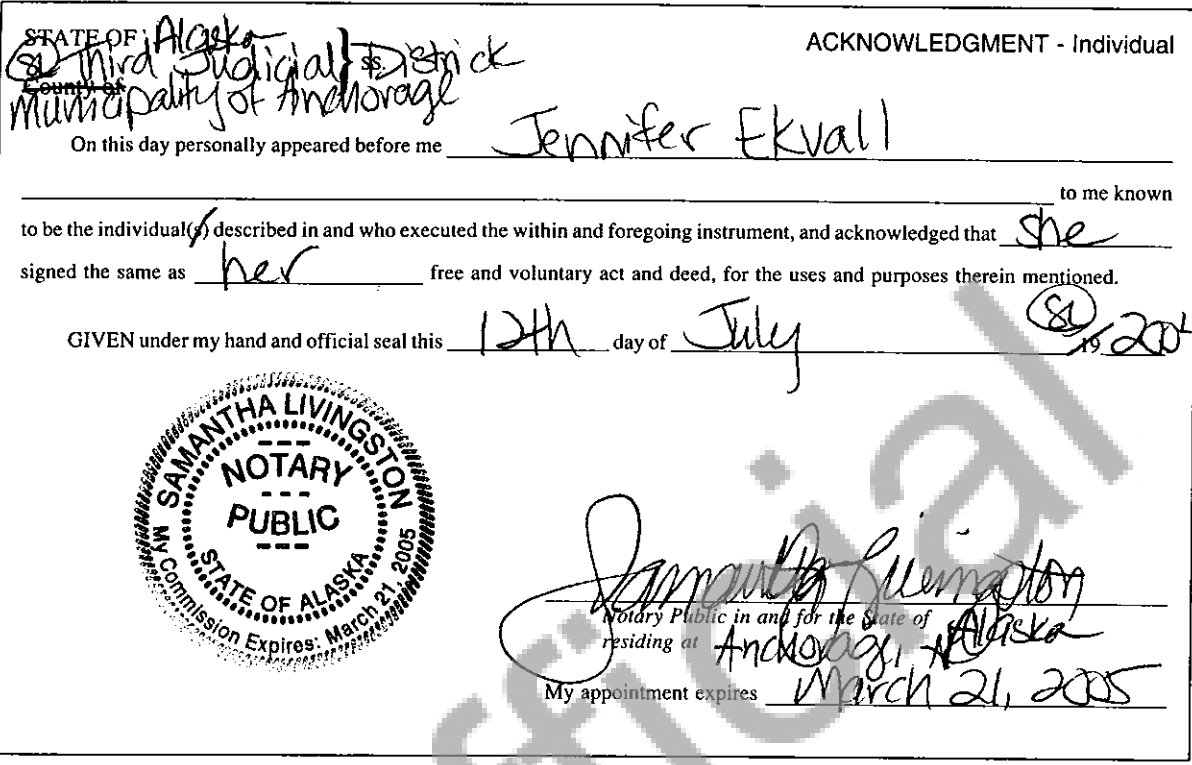 STATE OF Alaska
ACKNOWLEDGMENT - Individual
SL Third Judicial } ss. District
County of
Municipality of Anchorage
On this day personally appeared before me Jennifer Ekvall
to me known
to be the individual(s) described in and who executed the within and foregoing instrument, and acknowledged that she
signed the same as her free and voluntary act and deed, for the uses and purposes therein mentioned.
GIVEN under my hand and official seal this 12th day of July SL 19
SAMANTHA LIVINGSTON
NOTARY
PUBLIC
STATE OF ALASKA
My Commission Expires: March 21, 2005
Samantha Livingston
Notary Public in and for the State of Alaska
residing at Anchorage,
My appointment expires March 21, 2005
fficial